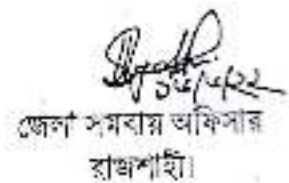 জেলা সমবায় অফিসার
রাজশাহী।